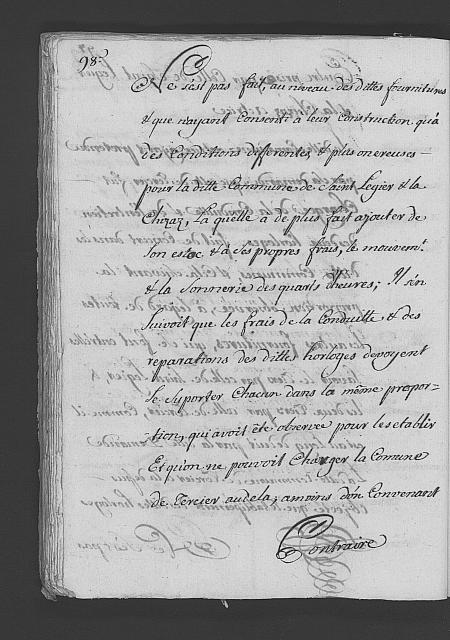 98.
Ne s'est pas fait, au niveau des dittes fournitures
& que n'ayant Consenti a leur Construction qu'a
des Conditions differentes, & plus onereuses =
pour la ditte Commune de Saint Legier & la
Chizaz, La quelle a de plus fait ajouter de
son estoc & a ses propres frais, le mouvem.t
& la Sonnerie des quarts d'heures; Il s'en
suivoit que les frais de la Conduitte & des
reparations des dittes horloges devoyent
se suporter Chacun dans la même propor-
-tion, qui avoit été observée pour les etablir
Et qu'on ne pouvoit Charger la Comune
de Tercier audela, amoins d'un Convenant
Contraire